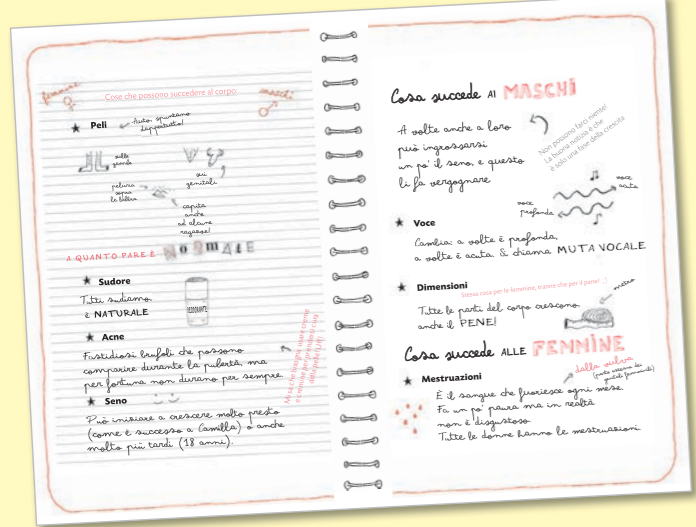 femmine
Cose che possono succedere al corpo:
maschi
★ Peli
Aiuto: spuntano
dappertutto!
sulle
gambe
sui
genitali
peluria
sopra
le labbra
capita
anche
ad alcune
ragazze!
A QUANTO PARE È NoRmALE
★ Sudore
Tutti sudiamo
è NATURALE
DEODORANTE
★ Acne
Fastidiosi brufoli che possono
comparire durante la pubertà, ma
per fortuna non durano per sempre.
Mi sa che bisogna usare creme
★ Seno
Può iniziare a crescere molto presto
(come è successo a Camilla) o anche
molto più tardi (18 anni).
Cosa succede AI MASCHi
A volte anche a loro
può ingrossarsi
un po' il seno, e questo
li fa vergognare
Non possono farci niente!
La buona notizia è che
è solo una fase della crescita
voce
acuta
voce
profonda
★ Voce
Cambia: a volte è profonda,
a volte è acuta. Si chiama MUTA VOCALE
★ Dimensioni
Stessa cosa per le femmine, tranne che per il pene! ;)
metro
Tutte le parti del corpo crescono,
anche il PENE!
Cosa succede ALLE FEMMiNE
★ Mestruazioni
dalla vulva
(parte esterna dei
genitali femminili)
È il sangue che fuoriesce ogni mese.
Fa un po' paura ma in realtà
non è disgustoso
Tutte le donne hanno le mestruazioni